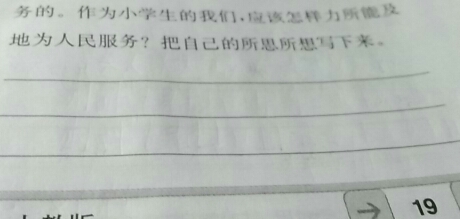 务的。作为小学生的我们,应该怎样力所能及
地为人民服务?把自己的所思所想写下来。
19